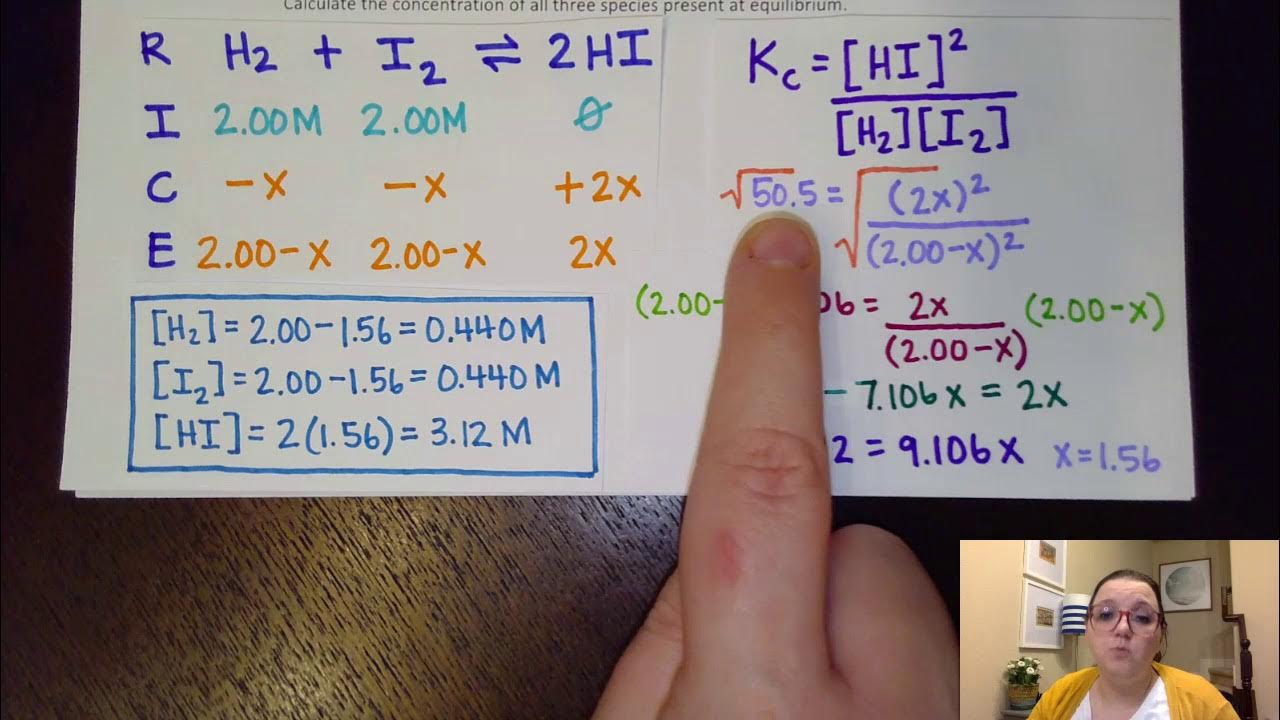 Calculate the concentration of all three species present at equilibrium.
R H₂ + I₂ ⇌ 2HI
I 2.00M 2.00M 0
C -X -X +2X
E 2.00-X 2.00-X 2X
[H₂] = 2.00-1.56 = 0.440M
[I₂] = 2.00-1.56 = 0.440M
[HI] = 2(1.56) = 3.12 M
Kc = [HI]²
[H₂][I₂]
√50.5 = √(2x)²
(2.00-x)²
(2.00- 06 = 2x (2.00-x)
(2.00-x)
- 7.106x = 2x
2 = 9.106x x=1.56